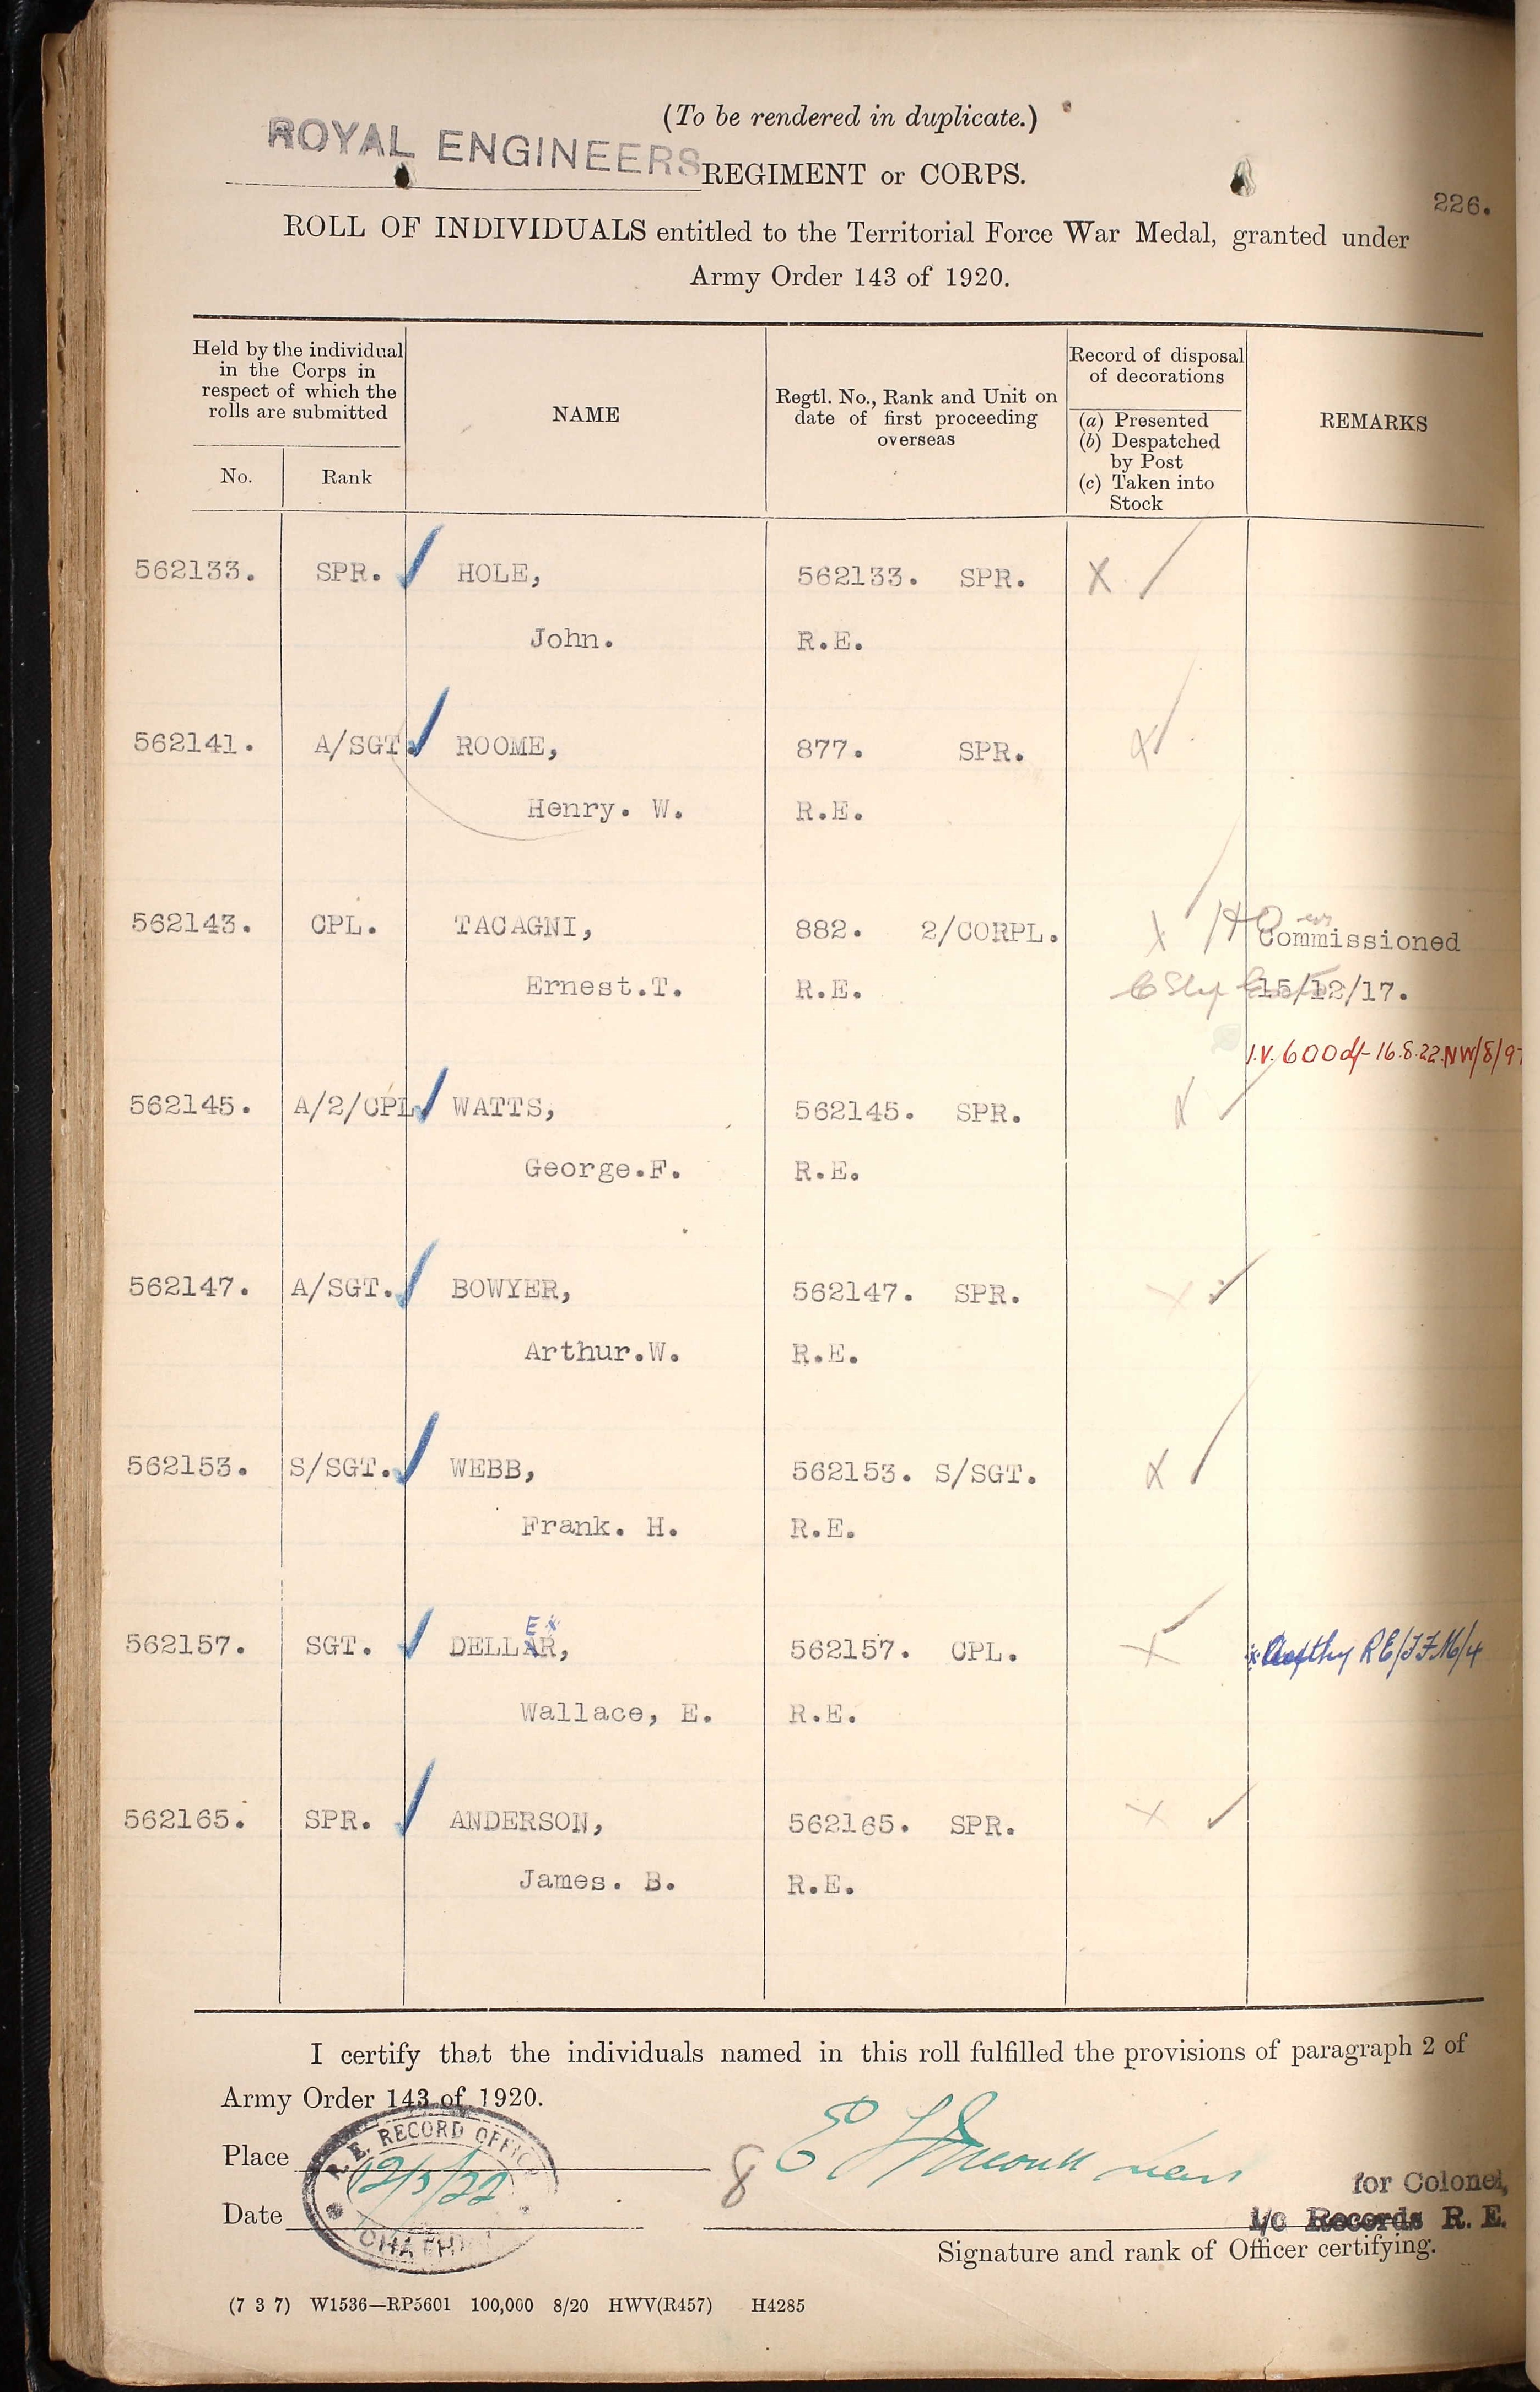 (To be rendered in duplicate.)
ROYAL ENGINEERS REGIMENT or CORPS.
226.
ROLL OF INDIVIDUALS entitled to the Territorial Force War Medal, granted under
Army Order 143 of 1920.
Held by the individual
in the Corps in
respect of which the
rolls are submitted
No.
Rank
NAME
Regtl. No., Rank and Unit on
date of first proceeding
overseas
Record of disposal
of decorations
(a) Presented
(b) Despatched
by Post
(c) Taken into
Stock
REMARKS
562133. SPR. HOLE, 562133. SPR. X
John. R.E.
562141. A/SGT. ROOME, 877. SPR. X
Henry. W. R.E.
562143. CPL. TACAGNI, 882. 2/CORPL. X Commissioned
Ernest.T. R.E. 15/12/17.
I.V. 600 d/- 16.8.22.NW/8/97
562145. A/2/CPL WATTS, 562145. SPR. X
George.F. R.E.
562147. A/SGT. BOWYER, 562147. SPR. X
Arthur.W. R.E.
562153. S/SGT. WEBB, 562153. S/SGT. X
Frank. H. R.E.
E x
562157. SGT. DELLAR, 562157. CPL. X x Authy RE/TFM/4
Wallace, E. R.E.
562165. SPR. ANDERSON, 562165. SPR. X
James. B. R.E.
I certify that the individuals named in this roll fulfilled the provisions of paragraph 2 of
Army Order 143 of 1920.
R.E. RECORD OFFICE
Place
12/3/22
8
for Colonel,
Date
CHATHAM
I/c Records R. E.
Signature and rank of Officer certifying.
(7 3 7) W1536—RP5601 100,000 8/20 HWV(R457) H4285